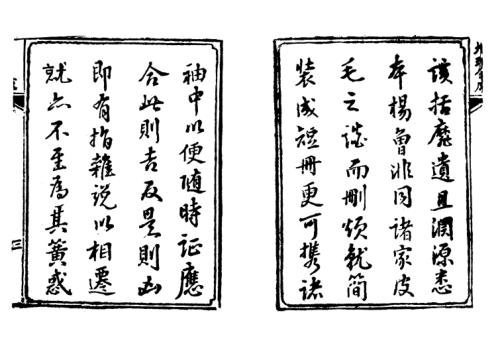 該括靡遺且淵源悉
本楊曾非同諸家皮
毛之談而刪煩就簡
裝成短冊更可攜諸
袖中以便隨時証應
合此則吉反是則凶
即有指雜說以相遷
就亦不至為其簧惑
三